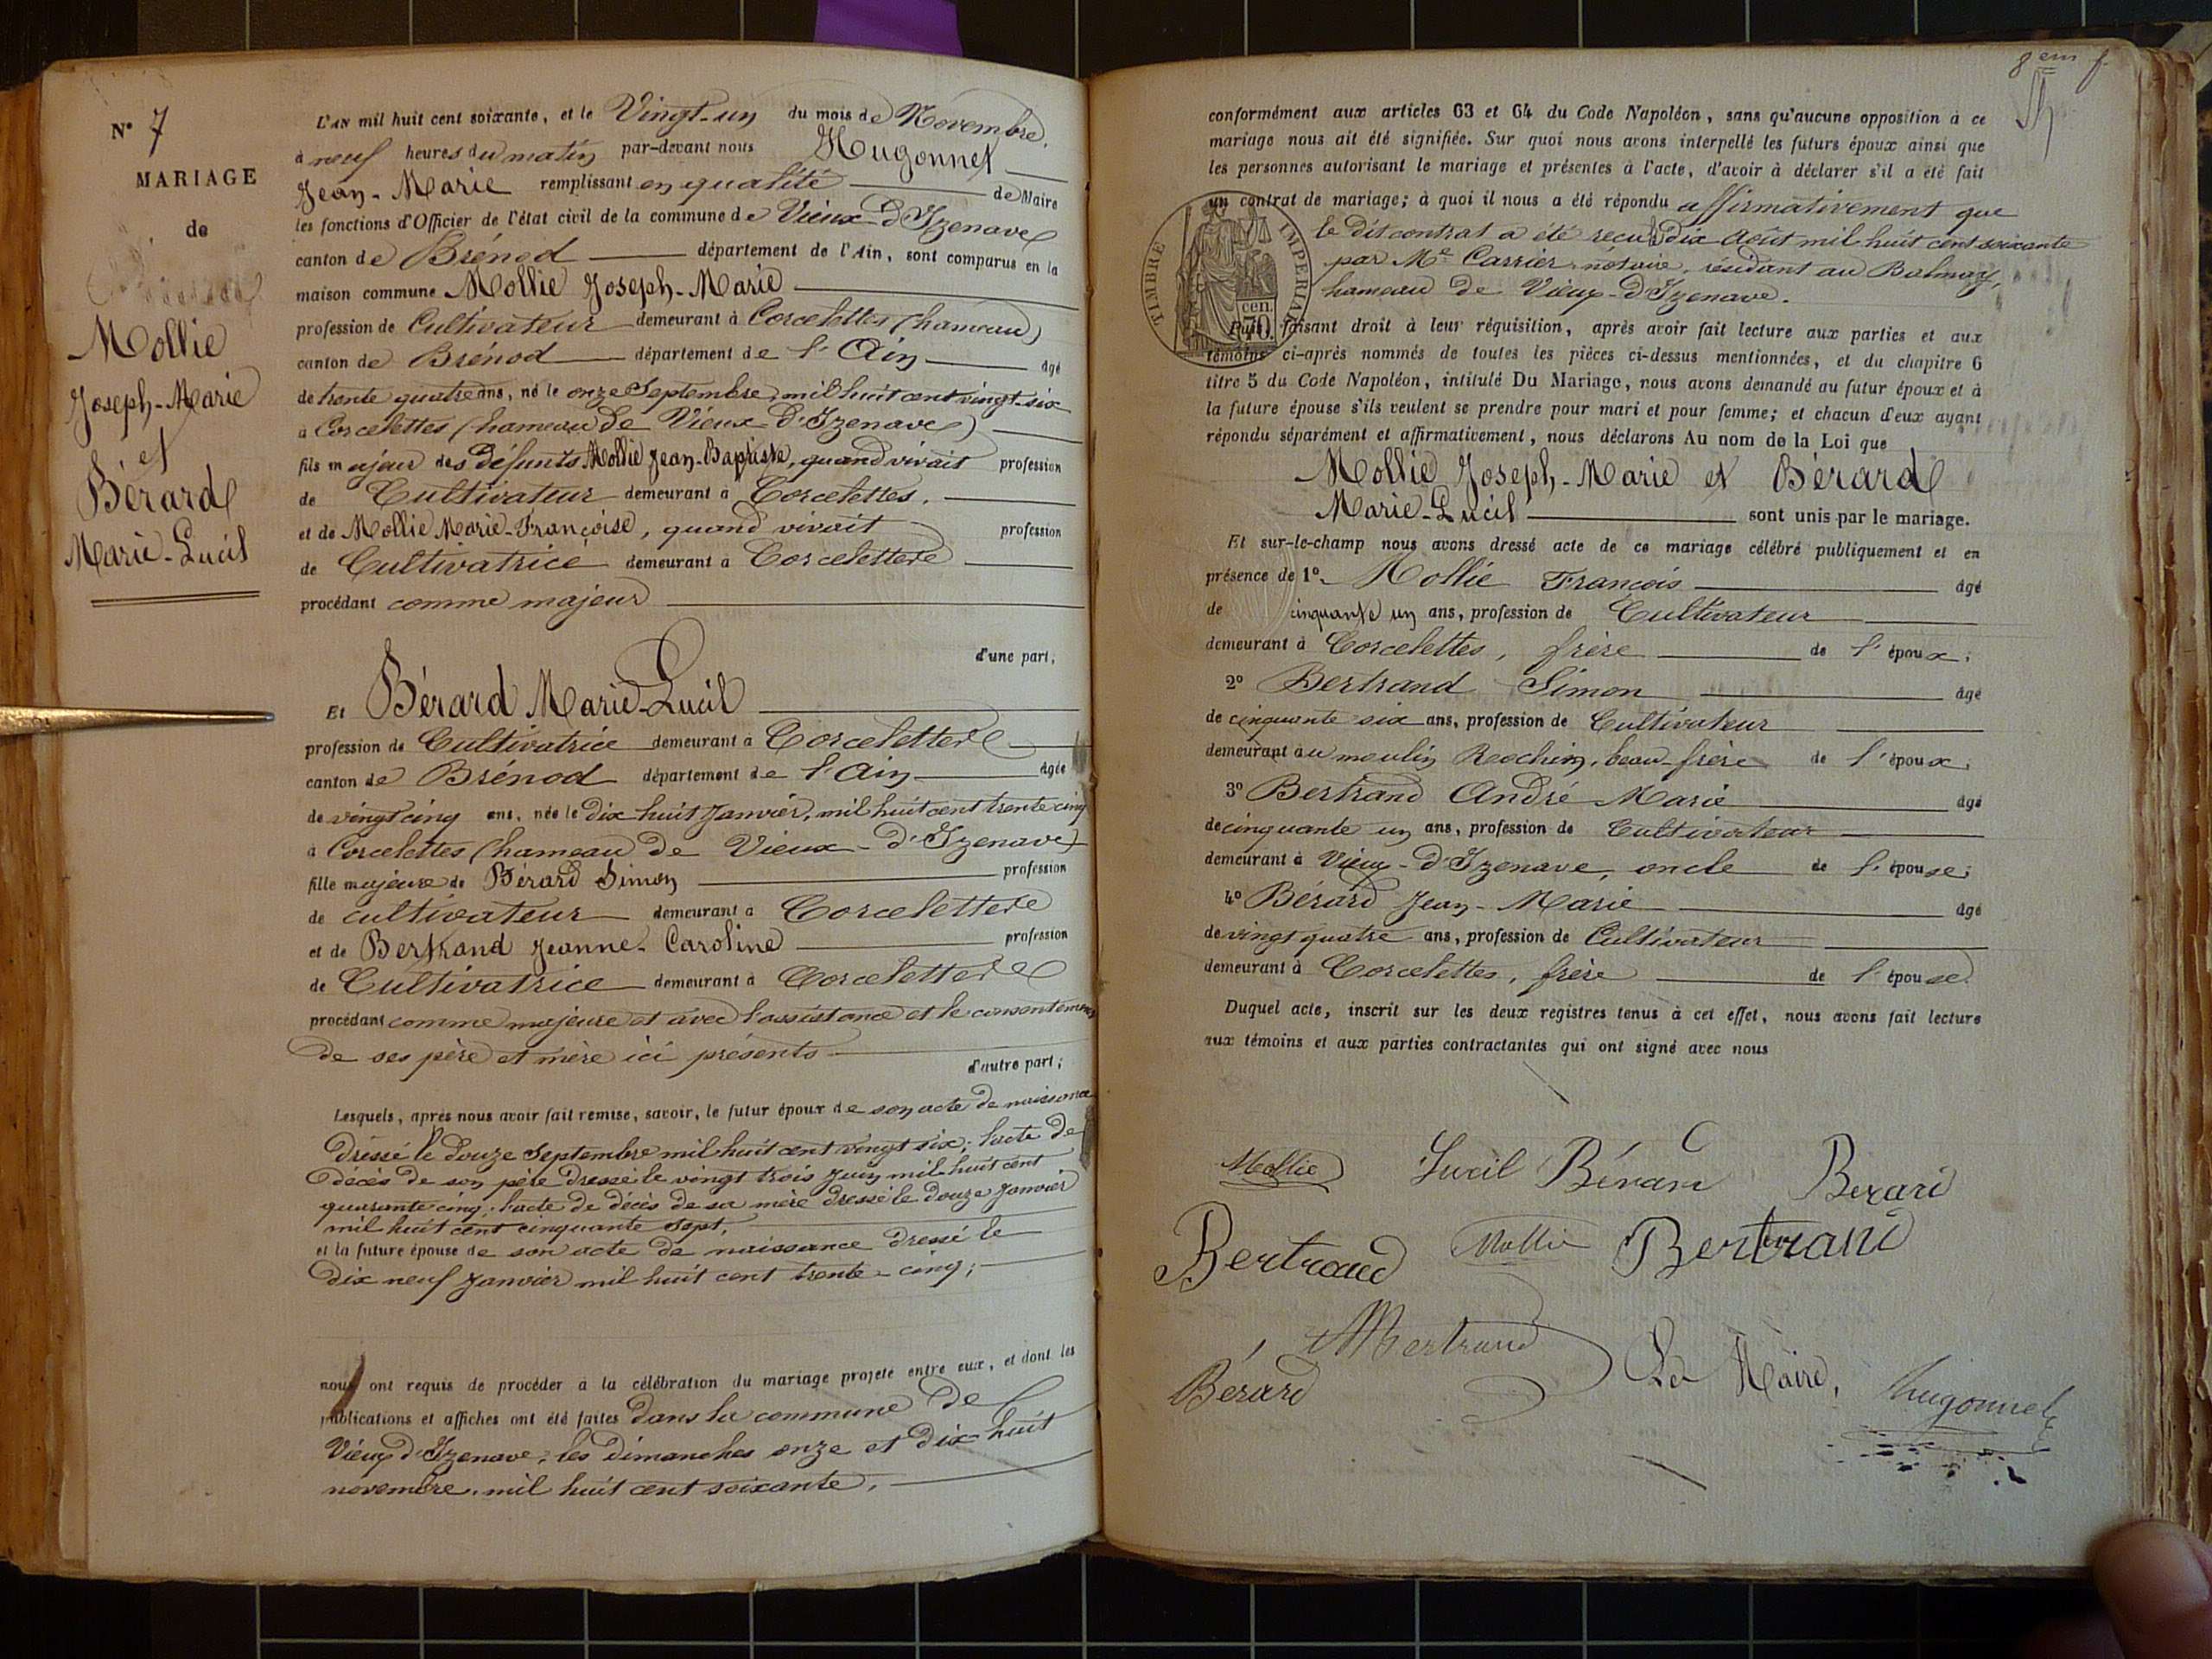 N° 7
MARIAGE
de
Mollie
Joseph-Marie
et
Bérard
Marie-Lucil
L'AN mil huit cent soixante, et le Vingt-un du mois de Novembre,
à neuf heures du matin par-devant nous Hugonnet
Jean-Marie remplissant en qualité de Maire
les fonctions d'Officier de l'état civil de la commune de Vieux-d'Izenave
canton de Brénod département de l'Ain, sont comparus en la
maison commune Mollie Joseph-Marie
profession de Cultivateur demeurant à Corcelettes (hameau)
canton de Brénod département de l'Ain âgé
de trente quatre ans, né le onze Septembre, mil huit cent vingt-six
à Corcelettes (hameau de Vieux-d'Izenave)
fils majeur des défunts Mollie Jean-Baptiste, quand vivait profession
de Cultivateur demeurant à Corcelettes,
et de Mollie Marie-Françoise, quand vivait profession
de Cultivatrice demeurant à Corcelettes
procédant comme majeur
d'une part;
Et Bérard Marie-Lucil
profession de Cultivatrice demeurant à Corcelettes
canton de Brénod département de l'Ain âgée
de vingt cinq ans, née le dix-huit Janvier, mil huit cent trente cinq
à Corcelettes (hameau de Vieux-d'Izenave)
fille majeure de Bérard Simon profession
de cultivateur demeurant à Corcelettes
et de Bertrand Jeanne-Caroline profession
de Cultivatrice demeurant à Corcelettes
procédant comme majeure et avec l'assistance et le consentement
de ses père et mère ici présents
d'autre part;
Lesquels, après nous avoir fait remise, savoir, le futur époux de son acte de naissance
dressé le douze Septembre mil huit cent vingt six; l'acte de
décès de son père dressé le vingt trois Juin mil huit cent
quarante cinq; l'acte de décès de sa mère dressé le douze Janvier
mil huit cent cinquante sept,
et la future épouse de son acte de naissance dressé le
dix neuf Janvier mil huit cent trente-cinq;
nous ont requis de procéder à la célébration du mariage projeté entre eux, et dont les
publications et affiches ont été faites dans la commune de
Vieux d'Izenave, les dimanches onze et dix-huit
novembre, mil huit cent soixante,
8em f.
conformément aux articles 63 et 64 du Code Napoléon, sans qu'aucune opposition à ce
mariage nous ait été signifiée. Sur quoi nous avons interpellé les futurs époux ainsi que
les personnes autorisant le mariage et présentes à l'acte, d'avoir à déclarer s'il a été fait
un contrat de mariage; à quoi il nous a été répondu affirmativement que
le dit contrat a été reçu le dix Août mil huit cent soixante
par Me Carrier, notaire, résidant au Balmay,
hameau de Vieux-d'Izenave.
TIMBRE IMPERIAL
70 cen.
Puis, faisant droit à leur réquisition, après avoir fait lecture aux parties et aux
témoins ci-après nommés de toutes les pièces ci-dessus mentionnées, et du chapitre 6
titre 5 du Code Napoléon, intitulé Du Mariage, nous avons demandé au futur époux et à
la future épouse s'ils veulent se prendre pour mari et pour femme; et chacun d'eux ayant
répondu séparément et affirmativement, nous déclarons Au nom de la Loi que
Mollie Joseph-Marie et Bérard
Marie-Lucil sont unis par le mariage.
Et sur-le-champ nous avons dressé acte de ce mariage célébré publiquement et en
présence de 1°. Mollie François âgé
de cinquante un ans, profession de Cultivateur
demeurant à Corcelettes, frère de l'époux;
2° Bertrand Simon âgé
de cinquante six ans, profession de Cultivateur
demeurant au moulin beau-frère de l'époux,
3° Bertrand André Marie âgé
de cinquante un ans, profession de Cultivateur
demeurant à Vieux-d'Izenave, oncle de l'épouse;
4° Bérard Jean-Marie âgé
de vingt quatre ans, profession de Cultivateur
demeurant à Corcelettes, frère de l'épouse.
Duquel acte, inscrit sur les deux registres tenus à cet effet, nous avons fait lecture
aux témoins et aux parties contractantes qui ont signé avec nous
Mollie Lucil Bérard Berard
Bertrand Mollie Bertrand
Bertrand
Bérard Le Maire, Hugonnet